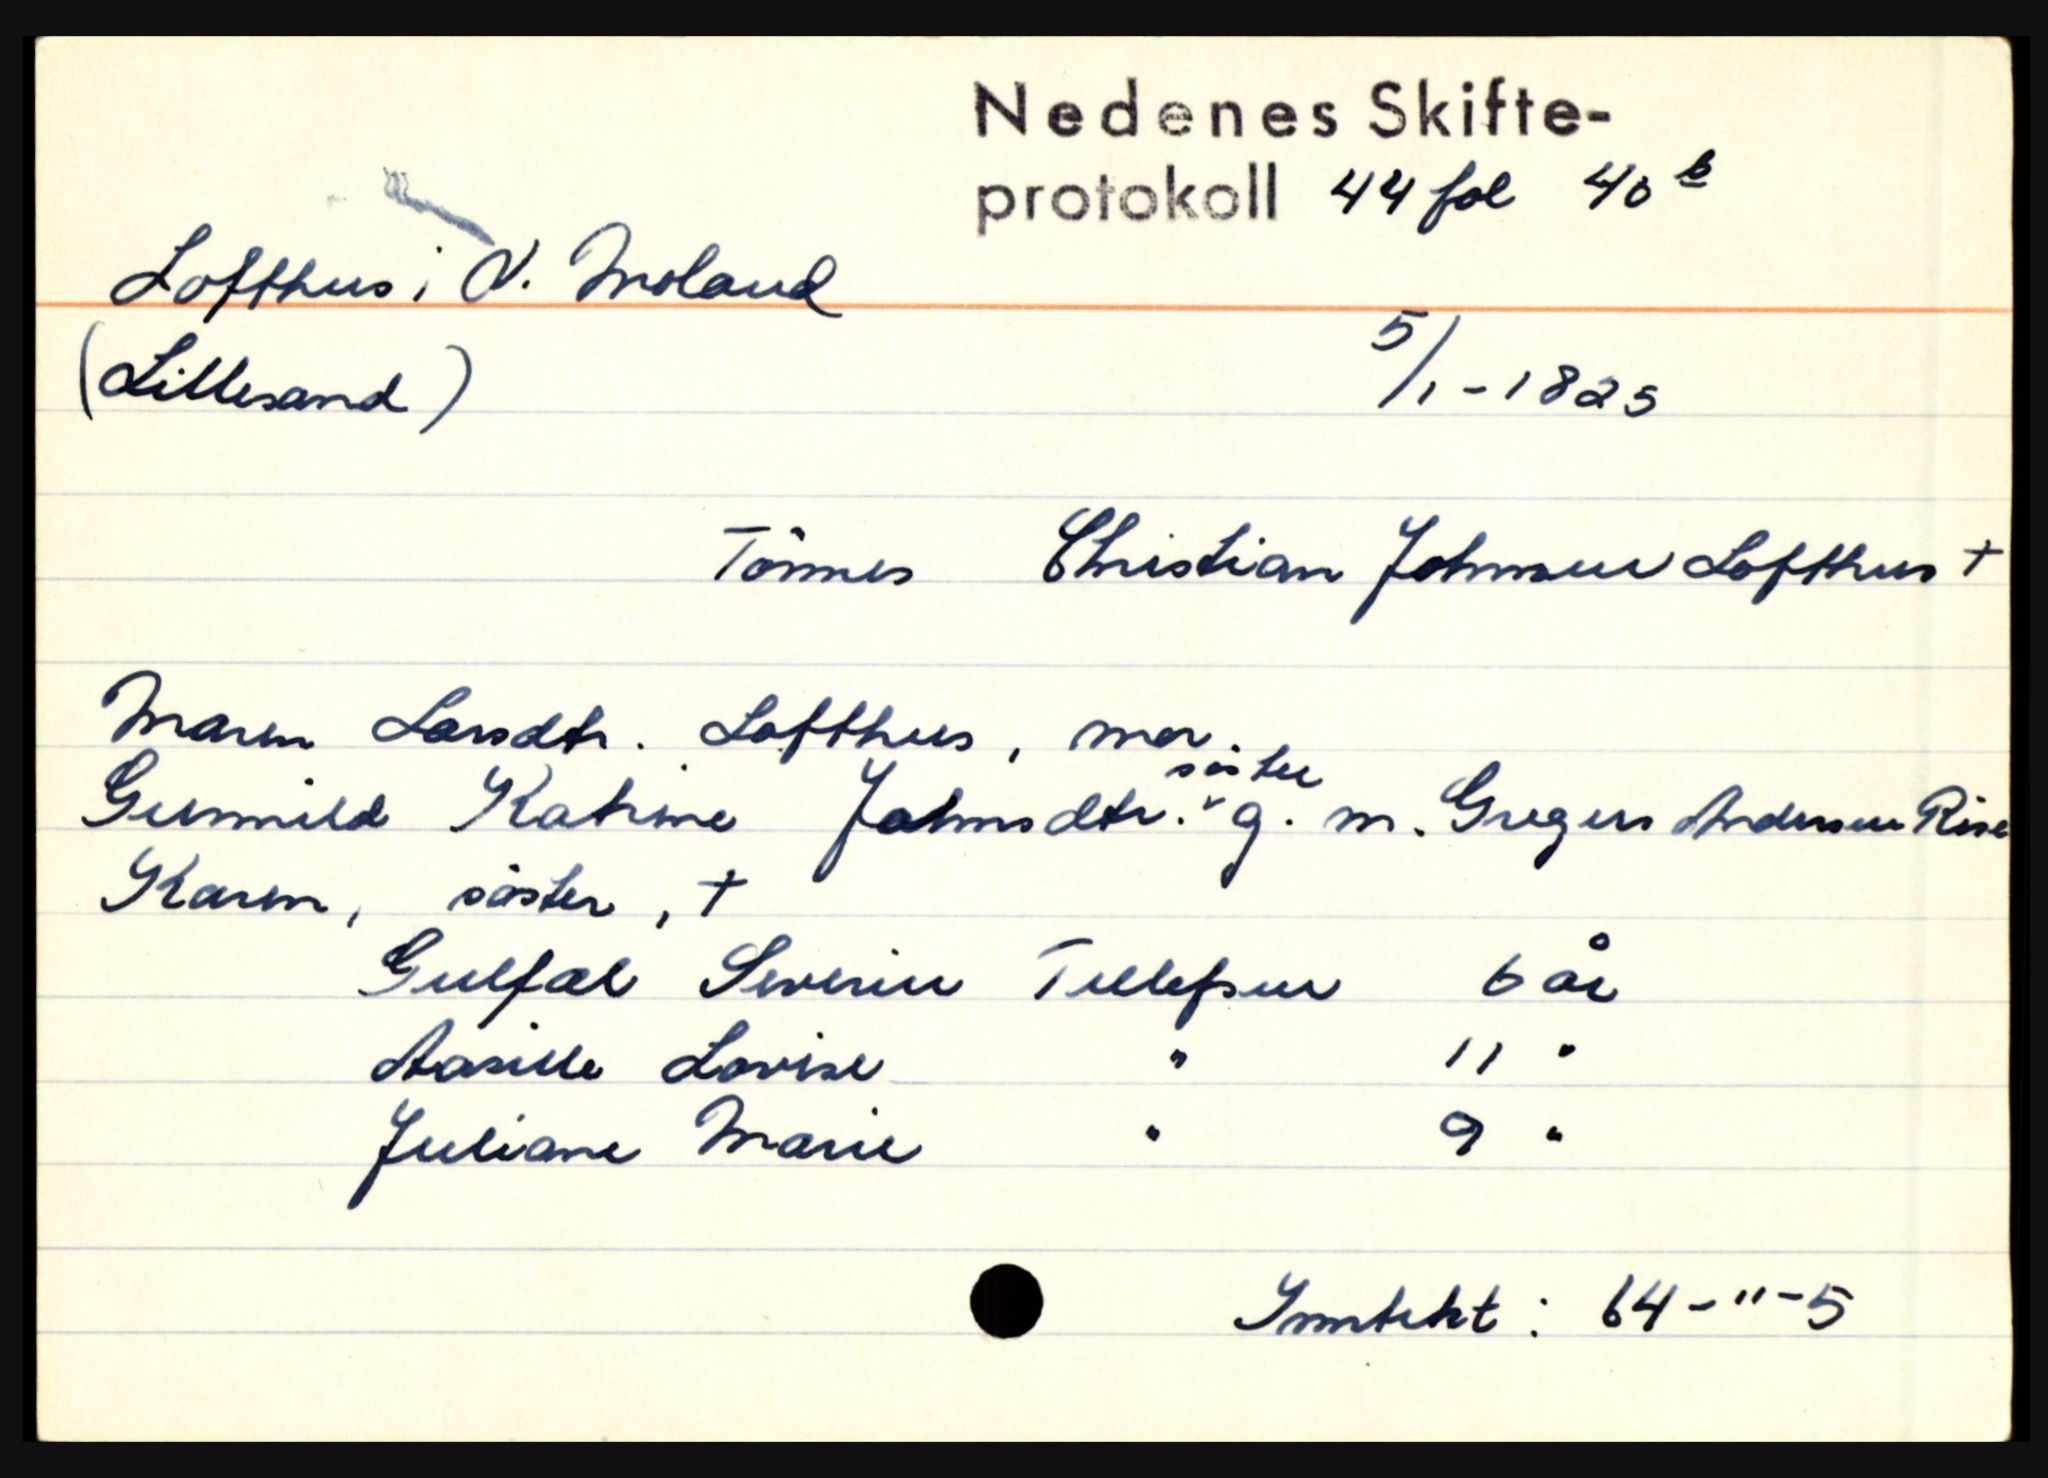 Nedenes Skifte-
protokoll 44 fol 40 b
Lofthus i V. Moland
(Lillesand)
5/1-1825
Tönnes Christian Johnsen Lofthus +
Maren Larsdtr. Lofthus, mor.
söster
Gunnild Katrine Johnsdtr. v g. m. Gregers Andersen Rise
Karen, söster, +
Gulfæl Severin Tellefsen 6 år
Aasille Lovise " 11 "
Juliane Marie " 9 "
Inntekt: 64-"-5